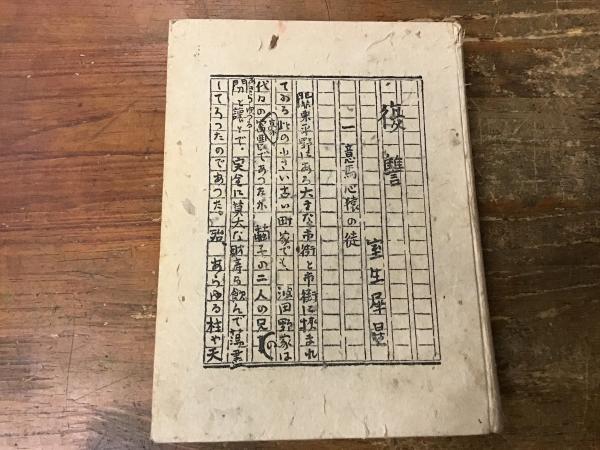 復讐
室生犀星
一 意馬心猿の徒
関東平野にある大きな市街と市街に挟まれ
てゐる此の小さい古い町家でも、濱田野家は
代々の豪農であつたが、其の二人の兄の
あらゆる
閧を譲とで、完全に莫大な財産を飲んで潰潰
してろつたのであつた。殆、あらゆる柱や天